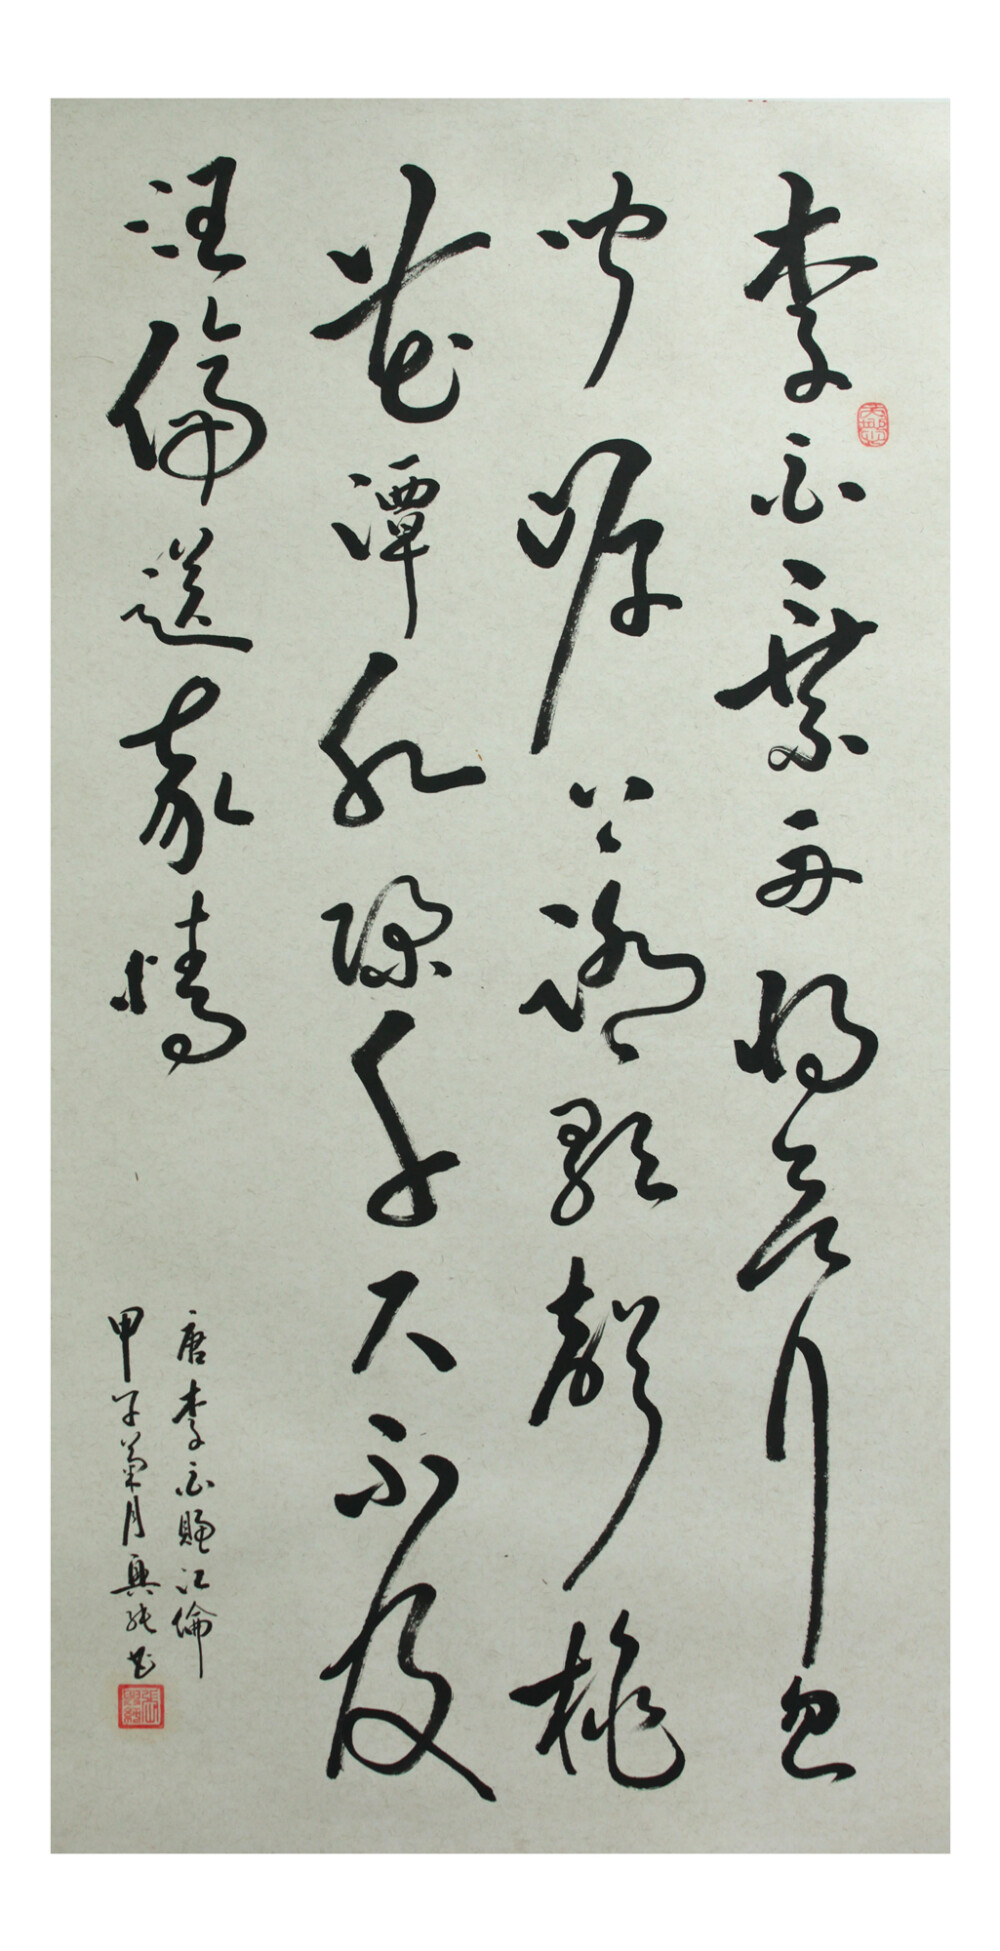 李白乘舟将欲行忽
闻岸上踏歌声桃
花潭水深千尺不及
汪伦送我情
唐李白赠汪伦
甲子菊月兴